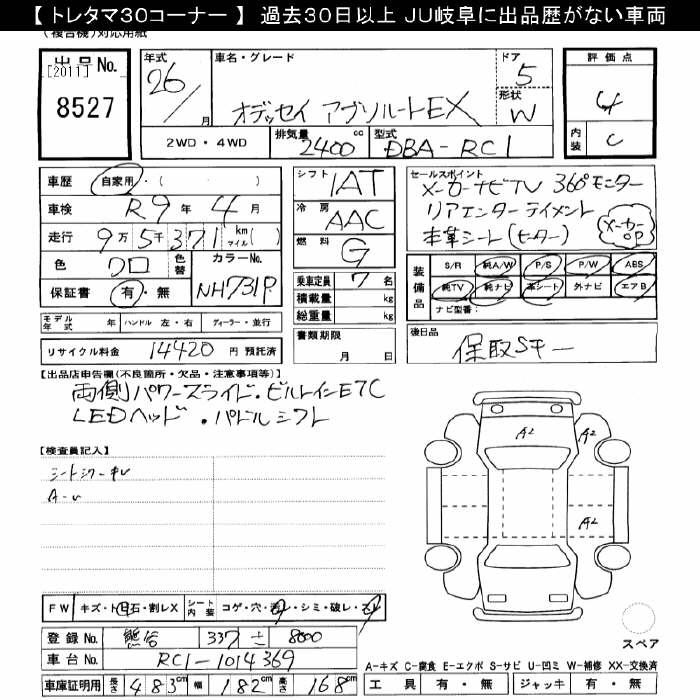 【 トレタマ30コーナー 】 過去30日以上 JU岐阜に出品歴がない車両
(複合機)対応用紙
出品No.
[2011]
8527
年式
26/
月
車名・グレード
オデッセイ アブソルートEX
ドア
5
形状
W
2WD・4WD
排気量
2400 cc
型式
DBA-RC1
評価点
4
内装
C
車歴 自家用・( )
車検 R9年4月
走行 9万5千371 km マイル( )
色 クロ 色替
カラーNo.
NH731P
保証書 有・無
シフト IAT
冷房 AAC
燃料 G
乗車定員 7名
積載量 kg
総重量 kg
セールスポイント
メーカーナビTV 360°モニター
リアエンターテイメント
本革シート(ヒーター)
メーカーOP
装備品
S/R 純A/W P/S P/W ABS
純TV 純ナビ 本シート 外ナビ エアB
ナビ型番:
モデル年式 年 ハンドル 左・右 ディーラー・並行
リサイクル料金 14420円 預託済
書類期限
月 日
後日品
保取Sキー
【出品店申告欄(不良箇所・欠品・注意事項等)】
両側パワースライド・ビルトインETC
LEDヘッド・パドルシフト
【検査員記入】
A-U
A2
A2
A2
FW キズ・ト石・割レX
シート内装 コゲ・穴・・シミ・破レ・
登録No. 熊谷 337 さ 8600
車台No. RC1-1014369
車庫証明用 長さ 483cm 幅 182cm 高さ 168cm
スペア
A-キズ C-腐食 E-エクボ S-サビ U-凹ミ W-補修 XX-交換済
工具 有・無 ジャッキ 有・無